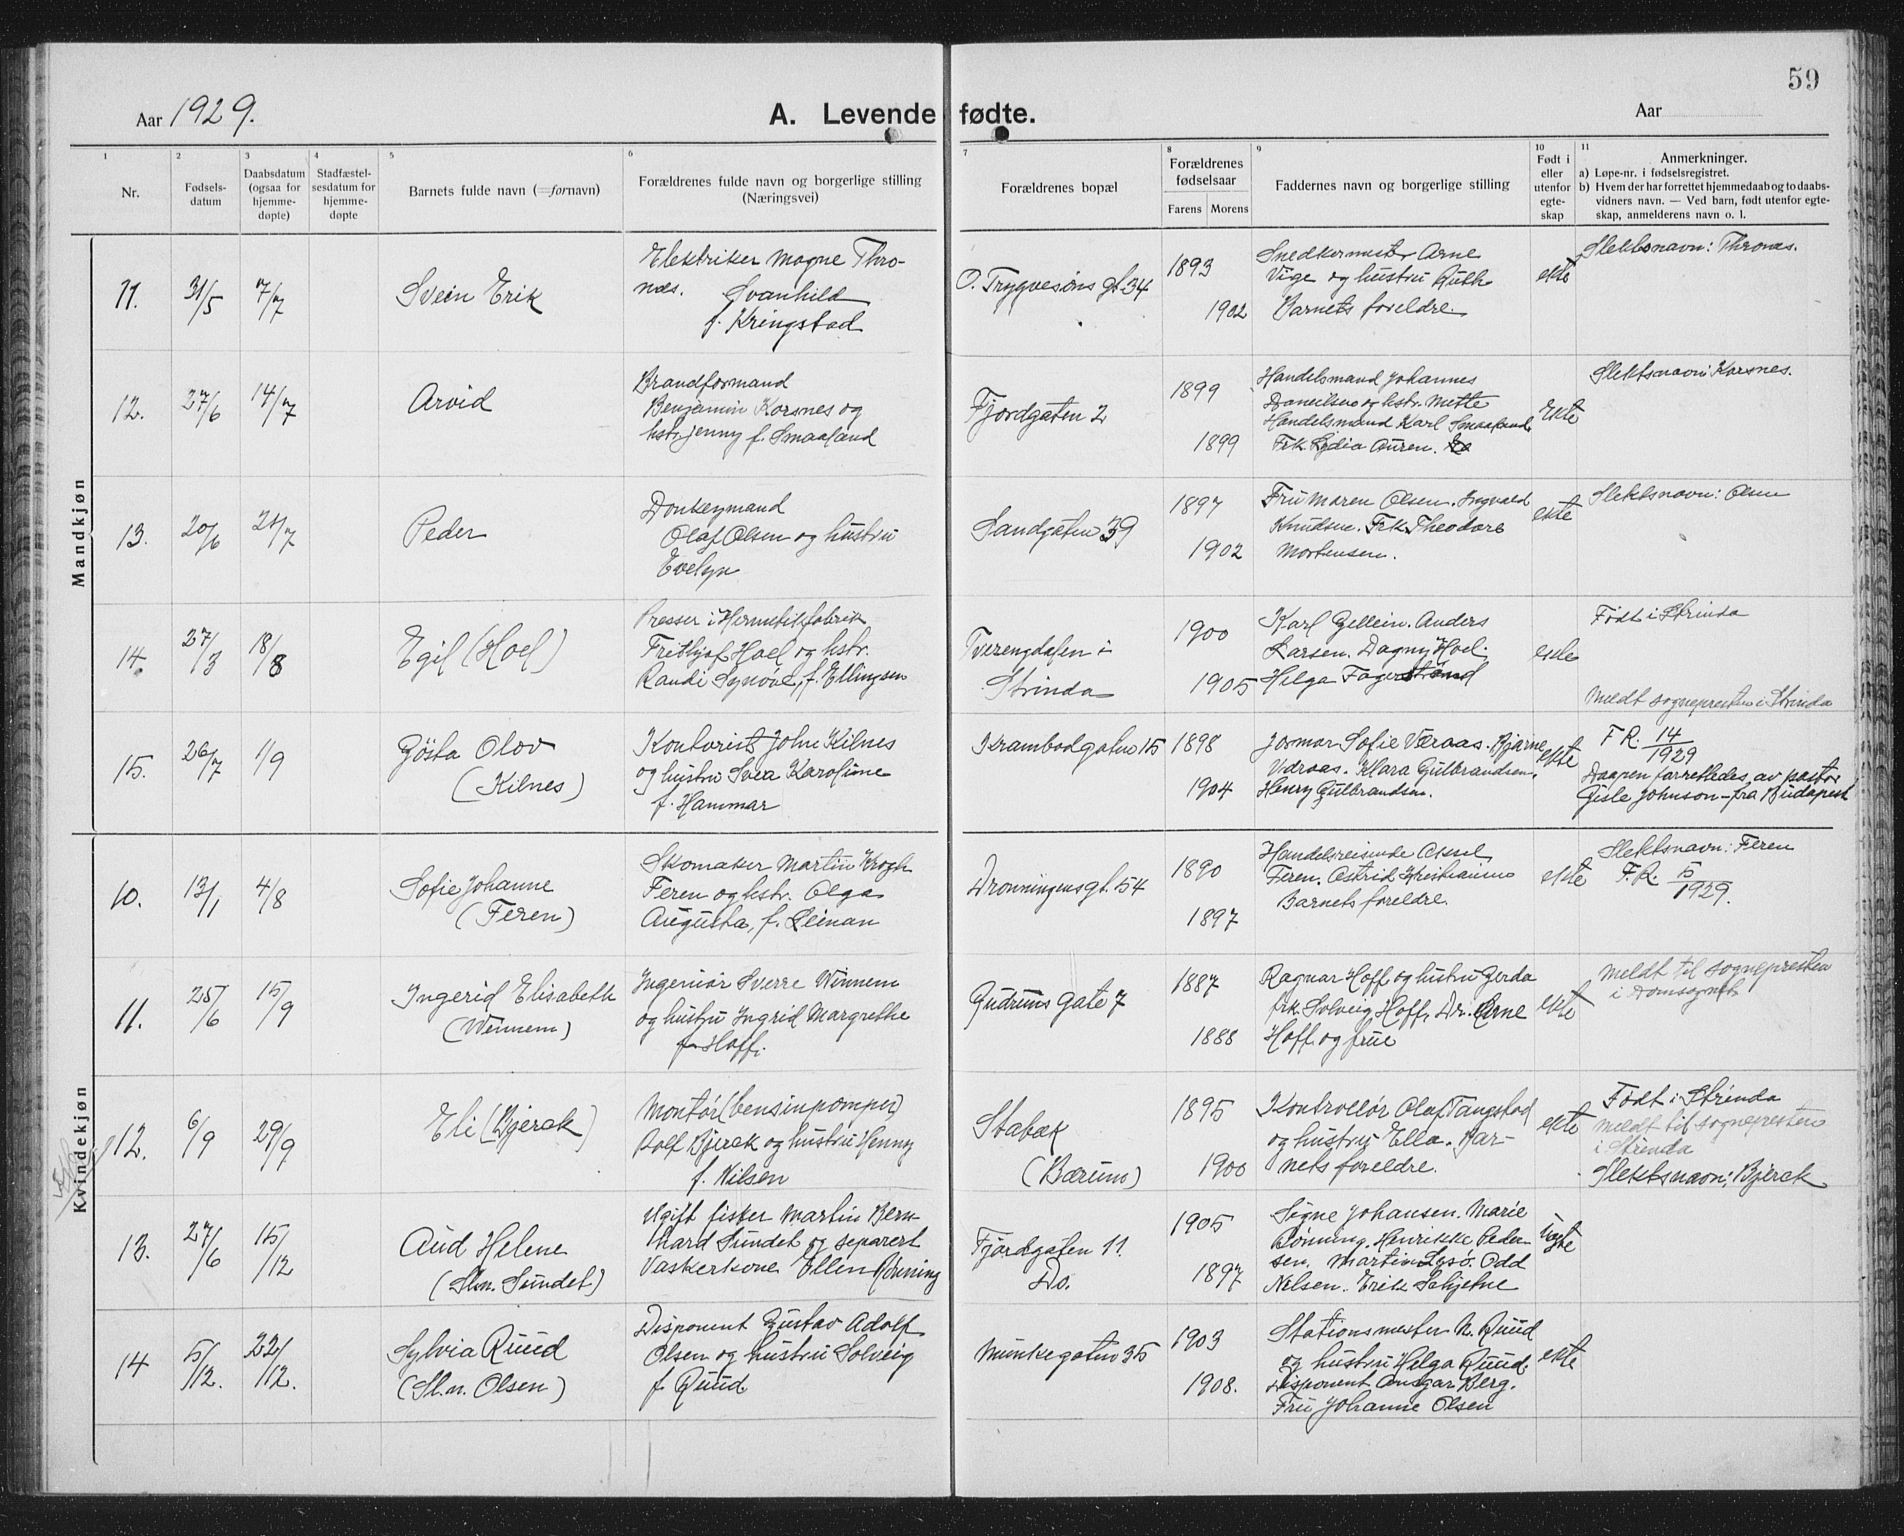 59
Aar 1929.
A. Levende fødte.
Aar
1 2 3 4 5 6 7 8 9 10 11
Nr.
Fødsels-
datum
Daabsdatum
(ogsaa for
hjemme-
døpte)
Stadfæstel-
sesdatum for
hjemme-
døpte
Barnets fulde navn (=fornavn)
Forældrenes fulde navn og borgerlige stilling
(Næringsvei)
Forældrenes bopæl
Forældrenes
fødselsaar
Farens Morens
Faddernes navn og borgerlige stilling
Født i
eller
utenfor
egte-
skap
Anmerkninger.
a) Løpe-nr. i fødselsregistret.
b) Hvem der har forrettet hjemmedaab og to daabs-
vidners navn. — Ved barn, født utenfor egte-
skap, anmelderens navn o. l.
Mandkjøn
11. 31/5 7/7 Svein Erik
Elektriker Magne Thro-
næs. Svanhild
f. Kringstad
O. Trygvesøns gt. 34
1893
1902
Snedkermester Arne
Vige og hustru Ruth
Barnets foreldre.
ekte
Slektsnavn: Thronæs.
12. 27/6 14/7 Arvid
Brandformand
Benjamin Korsnes og
hstr. Jenny f. Smaaland
Fjordgaten 2
1899
1899
Handelsmand Johannes
Danielsen og hstr. Mette
Handelsmand Karl Smaaland.
Frk. Lydia Auren.
ekte
Slektsnavn: Korsnes.
13. 20/6 21/7 Peder
Donkeymand
Olaf Olsen og hustru
Evelyn
Sandgaten 39
1897
1902
Fru Maren Olsen. Ingvald
Knudsen. Frk. Theodore
Mortensen.
ekte
Slektsnavn: Olsen
14. 27/3 18/8 Egil (Hoel)
Presser i Hermetikfabrik
Frithjof Hoel og hstr.
Randi Synøve, f. Ellingsen
Tverengdalen i
Strinda
1900
1905
Karl Gellein. Anders
Larsen. Dagny Hoel.
Helga Fagerstrand
ekte
Født i Strinda
Meldt sognepresten i Strinda
15. 26/7 1/9 Gösta Olov
(Kilnes)
Kontorist John Kilnes
og hustru Svea Karoline
f. Hammar
Krambodgaten 15
1898
1904
Sofie Væraas. Bjarne
Væraas. Klara Gulbrandsen.
Henry Gulbrandsen.
ekte
F R. 14/1929
Daapen forrettedes av pastor
Gisle Johnson - fra Budapest
Kvindekjøn
10. 13/1 4/8 Sofie Johanne
(Feren)
Skomaker Martin Krogh
Feren og hstr. Olga
Augusta, f. Leinan
Dronningensgt. 54
1890
1897
Handelsreisende Aksel
Feren. Astrid Kristiansen
Barnets foreldre.
ekte
Slektsnavn: Feren
F. R. 5/1929.
11. 25/6 15/9 Ingerid Elisabeth
(Winnem)
Ingeniør Sverre Winnem
og hustru Ingrid Margrethe
f. Hoff.
Gudruns gate 7
1887
1888
Ragnar Hoff og hustru Gerda
frk. Solveig Hoff, Dr. Arne
Hoff og frue
ekte
Meldt til sognepresten
i Domsognet
12. 6/9 29/9 Eli (Bjerck)
Montør (bensinpomper)
Rolf Bjerck og hustru Henny
f. Nilsen
Stabæk
(Bærum)
1895
1900
Kontrollør Olaf Tangstad
og hustru Ella. Bar-
nets foreldre.
ekte
Født i Strinda
meldt til sognepresten
i Strinda
Slektsnavn: Bjerck
13. 27/6 15/12 Aud Helene
(Sl.n. Sundet)
Ugift fisker Martin Bern-
hard Sundet og separert
Vaskerkone Ellen Rønning
Fjordgaten 11.
Do.
1905
1897
Signe Johansen. Marie
Rønning. Henrikke Peder-
sen. Martin Lysø. Odd
Nelsen. Erik Schjetne
14 5/12. 22/12. Sylvia Ruud
(Sl.n. Olsen)
Disponent Gustav Adolf
Olsen og hustru Solveig
f. Ruud
Munkegaten 35
1903
1908.
Stationsmester N. Ruud
og hustru Helga Ruud.
Disponent Ansgar Berg.
Fru Johanne Olsen
ekte